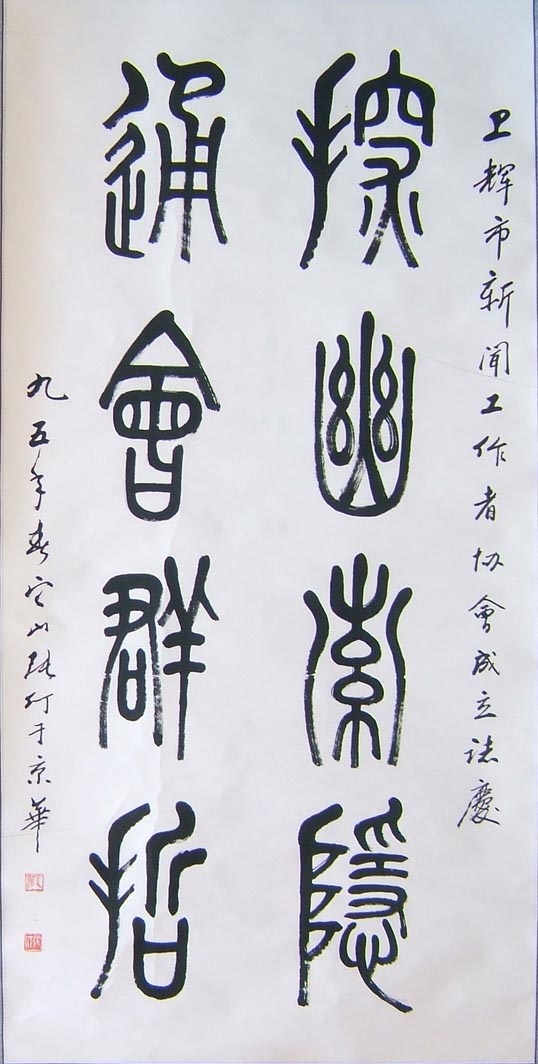 卫辉市新闻工作者协會成立誌慶
探幽索隱
通會群哲
九五年春它山張仃于京華